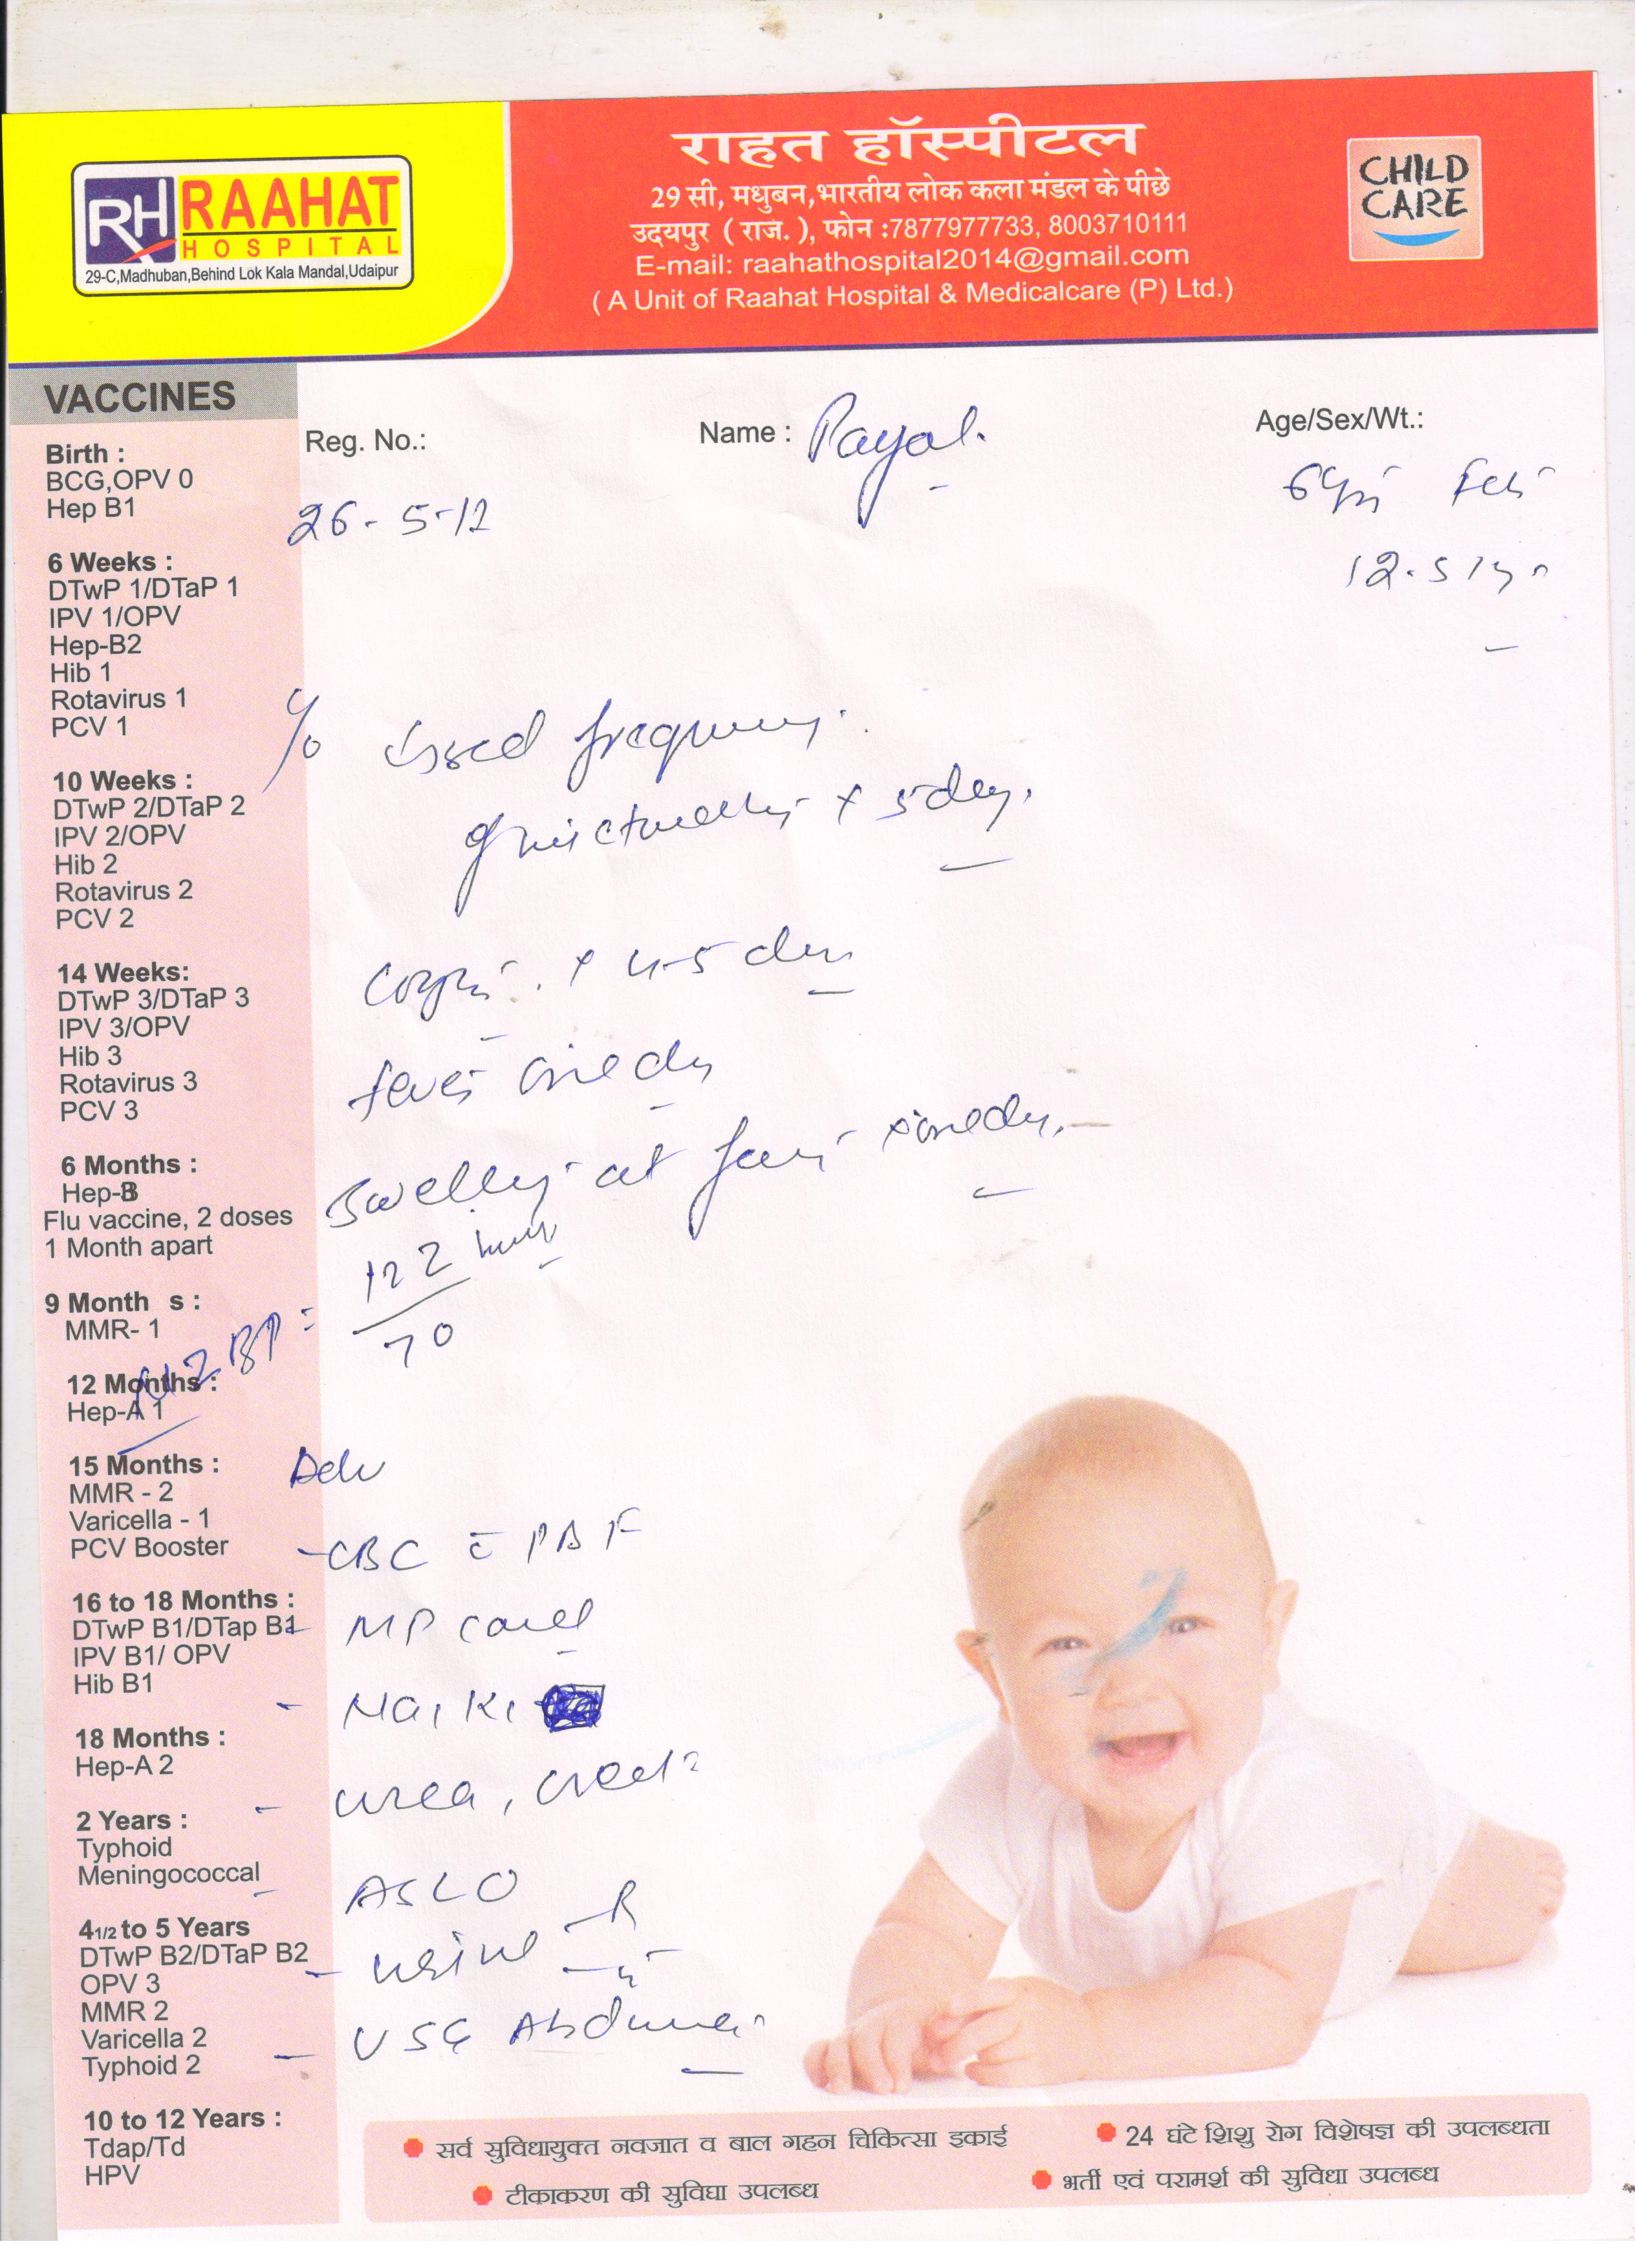 राहत हॉस्पीटल
29 सी, मधुबन,भारतीय लोक कला मंडल के पीछे
उदयपुर ( राज. ), फोन :7877977733, 8003710111
E-mail: raahathospital2014@gmail.com
( A Unit of Raahat Hospital & Medicalcare (P) Ltd.)
RH RAAHAT
HOSPITAL
29-C,Madhuban,Behind Lok Kala Mandal,Udaipur
CHILD
CARE
VACCINES
Birth :
BCG,OPV 0
Hep B1
6 Weeks :
DTwP 1/DTaP 1
IPV 1/OPV
Hep-B2
Hib 1
Rotavirus 1
PCV 1
10 Weeks :
DTwP 2/DTaP 2
IPV 2/OPV
Hib 2
Rotavirus 2
PCV 2
14 Weeks:
DTwP 3/DTaP 3
IPV 3/OPV
Hib 3
Rotavirus 3
PCV 3
6 Months :
Hep-B3
Flu vaccine, 2 doses
1 Month apart
9 Month s :
MMR- 1
12 Months :
Hep-A 1
15 Months :
MMR - 2
Varicella - 1
PCV Booster
16 to 18 Months :
DTwP B1/DTap B1
IPV B1/ OPV
Hib B1
18 Months :
Hep-A 2
2 Years :
Typhoid
Meningococcal
41/2 to 5 Years
DTwP B2/DTaP B2
OPV 3
MMR 2
Varicella 2
Typhoid 2
10 to 12 Years :
Tdap/Td
HPV
Reg. No.: Name : Payal. Age/Sex/Wt.:
26-5-12
12.5
c/o frequency
of x 5 day.
x 4-5 day
fever one day
Swelling at face x one day.
BP = 122
70
Adv
- CBC c̄ PBF
- MP card
- Na, K,
- urea, creat
- ASLO
- urine R
- USG Abdomen
सर्व सुविधायुक्त नवजात व बाल गहन चिकित्सा इकाई
24 घंटे शिशु रोग विशेषज्ञ की उपलब्धता
टीकाकरण की सुविधा उपलब्ध
भर्ती एवं परामर्श की सुविधा उपलब्ध